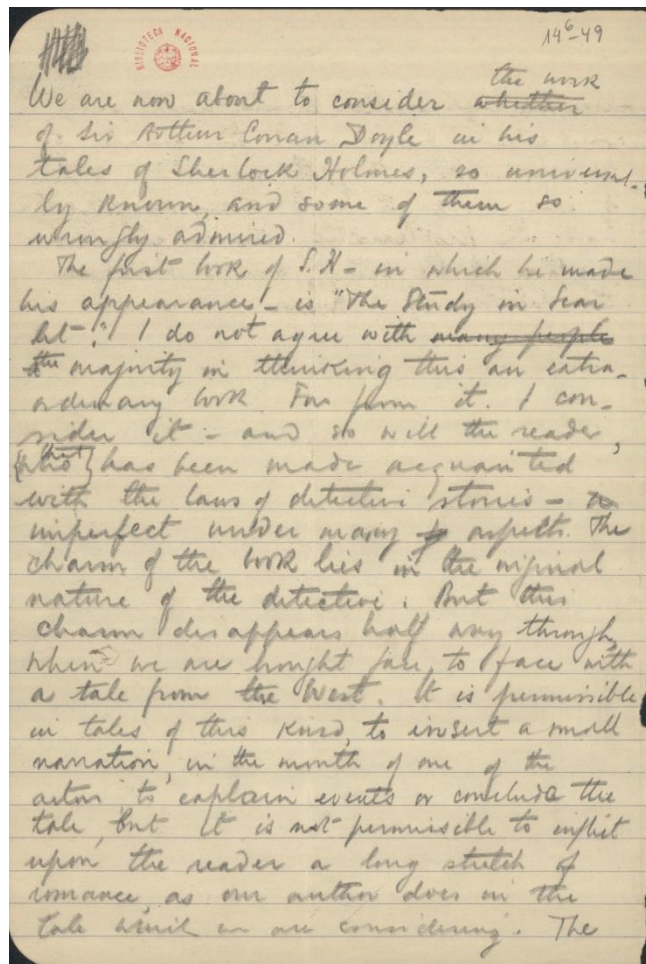 14⁶-49
BIBLIOTECA NACIONAL
the work
We are now about to consider whether
of Sir Arthur Conan Doyle in his
tales of Sherlock Holmes, so universal-
ly known, and some of them so
wrongly admired.
The first book of S.H – in which he made
his appearance – is "The Study in Scar
let." I do not agree with many people
the majority in thinking this an extra-
ordinary book Far from it. I con-
sider it – and so will the reader,
that has been made acquainted
with the laws of detective stories –
imperfect under many aspects. The
charm of the book lies in the original
nature of the detective. But this
charm disappears half way through,
when we are brought face to face with
a tale from the West. It is permissible
in tales of this kind, to insert a small
narration, in the mouth of one of the
actors to explain events or conclude the
tale, but it is not permissible to inflict
upon the reader a long stretch of
romance, as our author does in the
tale which we are considering. The